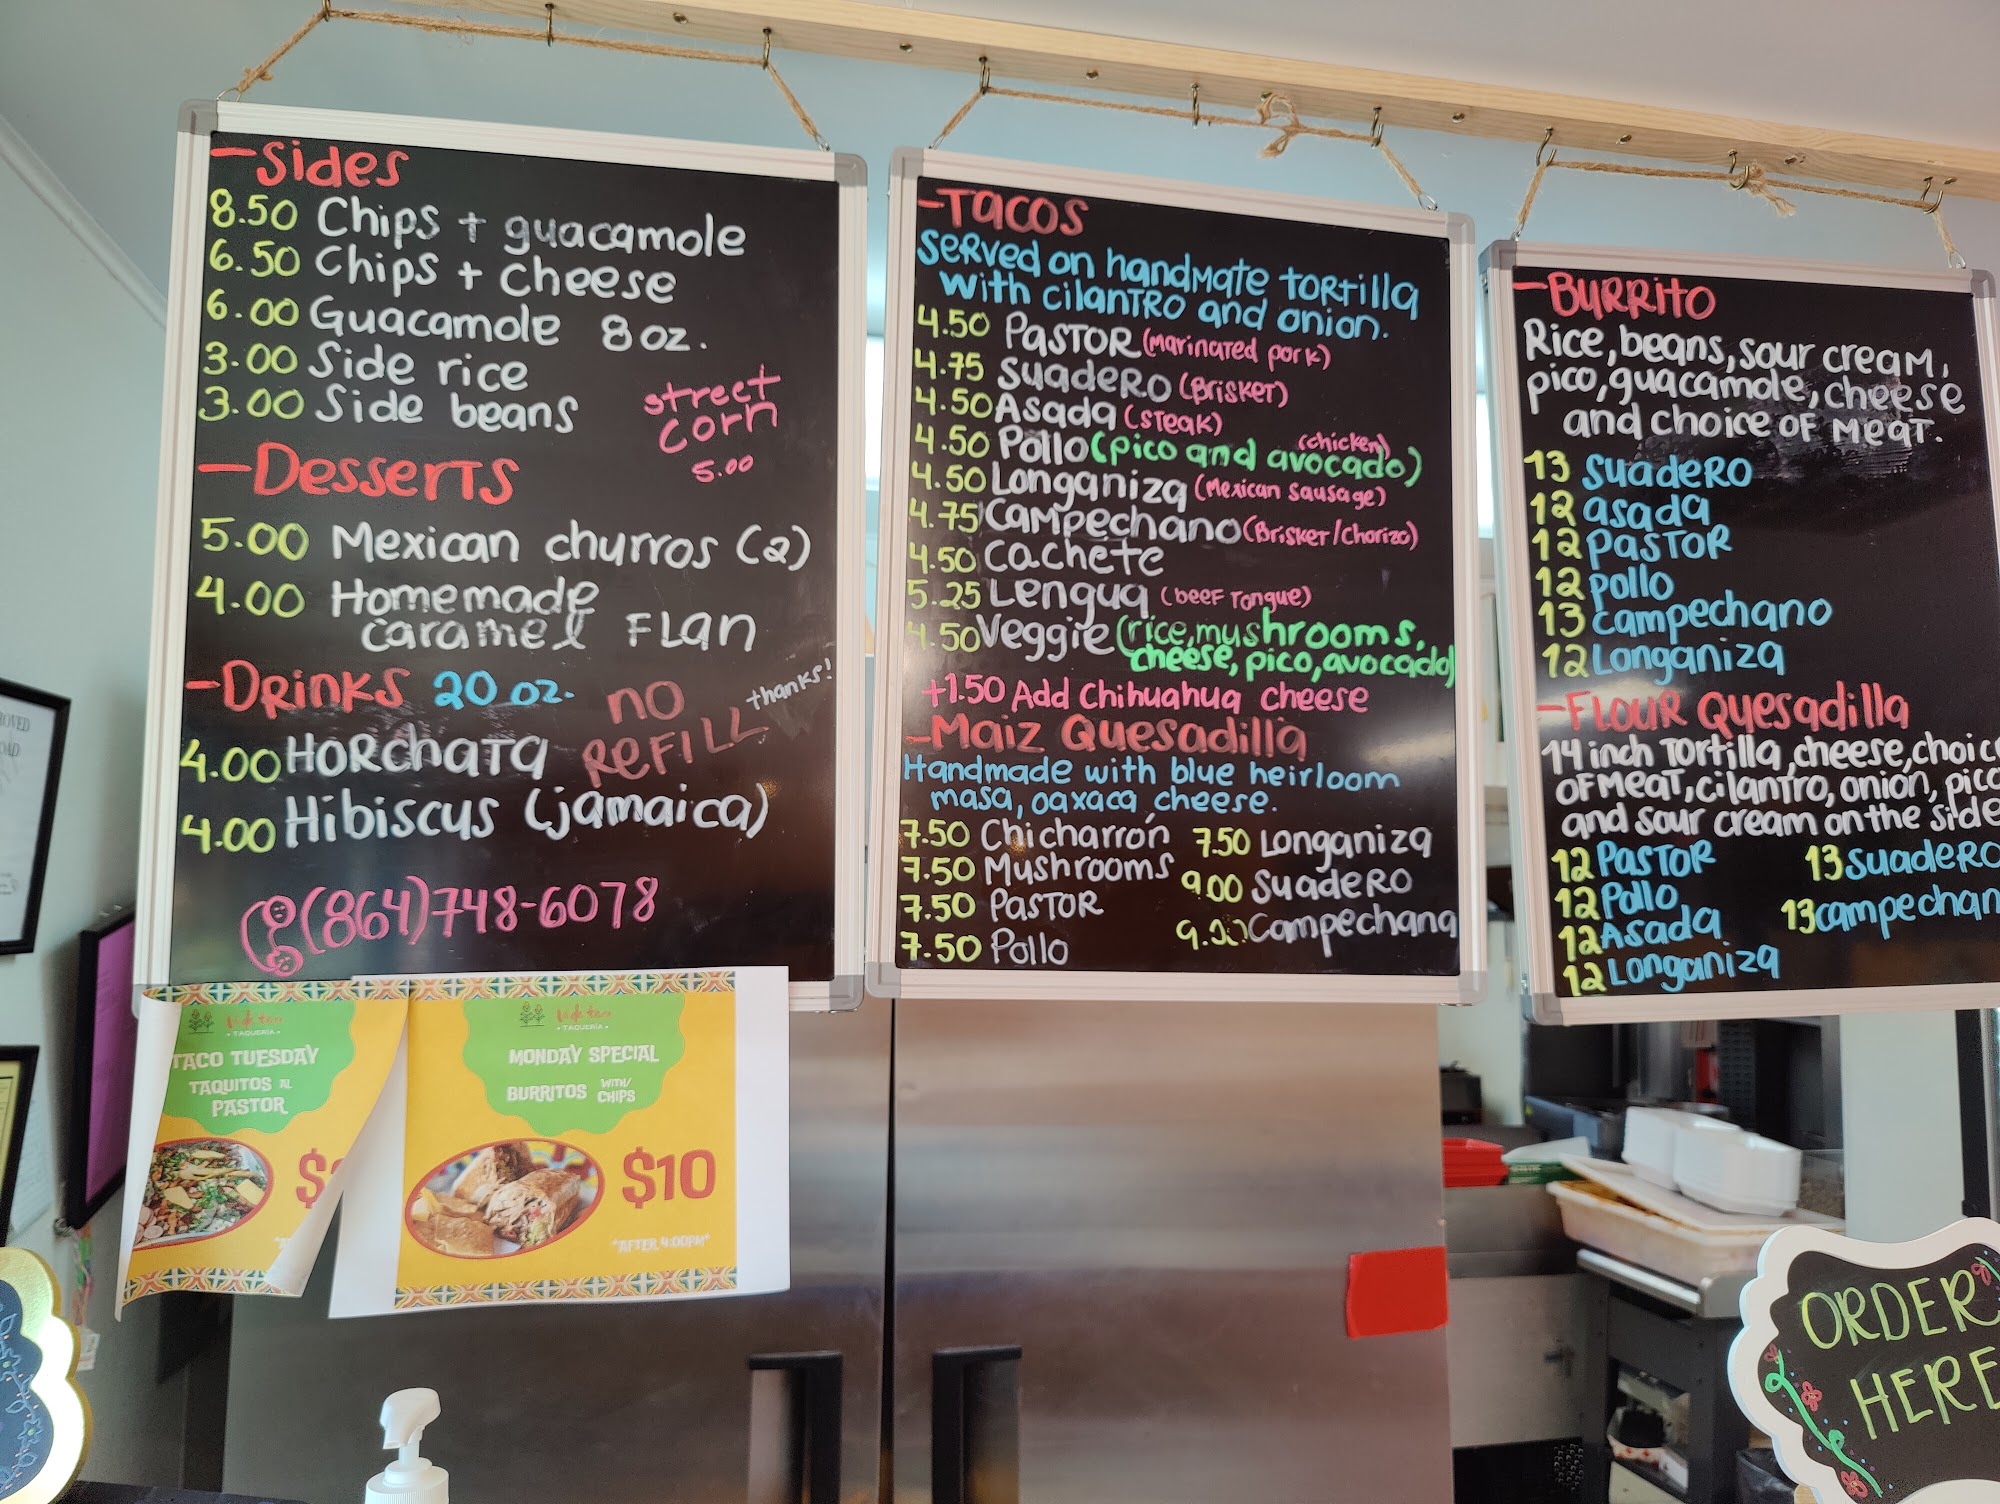 -Sides
8.50 Chips + guacamole
6.50 Chips + cheese
6.00 Guacamole 8 oz.
3.00 Side rice
3.00 Side beans
street
corn
5.00
-Desserts
5.00 Mexican churros (2)
4.00 Homemade
caramel Flan
-Drinks 20 oz.
NO
REFILL
thanks!
4.00 HORchata
4.00 Hibiscus (jamaica)
(864)748-6078
-Tacos
Served on handmate tortilla
with cilantro and onion.
4.50 Pastor (marinated pork)
4.75 Suadero (Brisket)
4.50 Asada (steak)
4.50 Pollo (pico and avocado) (chicken)
4.50 Longaniza (Mexican sausage)
4.75 Campechano (Brisket/Chorizo)
4.50 Cachete
5.25 Lengua (beef Tongue)
4.50 Veggie (rice, mushrooms,
cheese, pico, avocado)
+1.50 Add Chihuahua cheese
-Maiz Quesadilla
Handmade with blue heirloom
masa, oaxaca cheese.
7.50 Chicharrón
7.50 Mushrooms
7.50 Pastor
7.50 Pollo
7.50 Longaniza
9.00 Suadero
Campechana
-Burrito
Rice, beans, sour cream,
pico, guacamole, cheese
and choice of meat.
13 Suadero
12 asada
12 Pastor
12 pollo
13 campechano
12 Longaniza
-Flour Quesadilla
14 inch tortilla, cheese,
of meat, cilantro, onion, pico
and sour cream on the side
12 Pastor
12 Pollo
12 Asada
12 Longaniza
13 Suadero
13
TAQUERIA
TACO TUESDAY
TAQUITOS AL
PASTOR
TAQUERIA
MONDAY SPECIAL
BURRITOS WITH/
CHIPS
$10
*AFTER 4:00PM*
ORDER
HERE